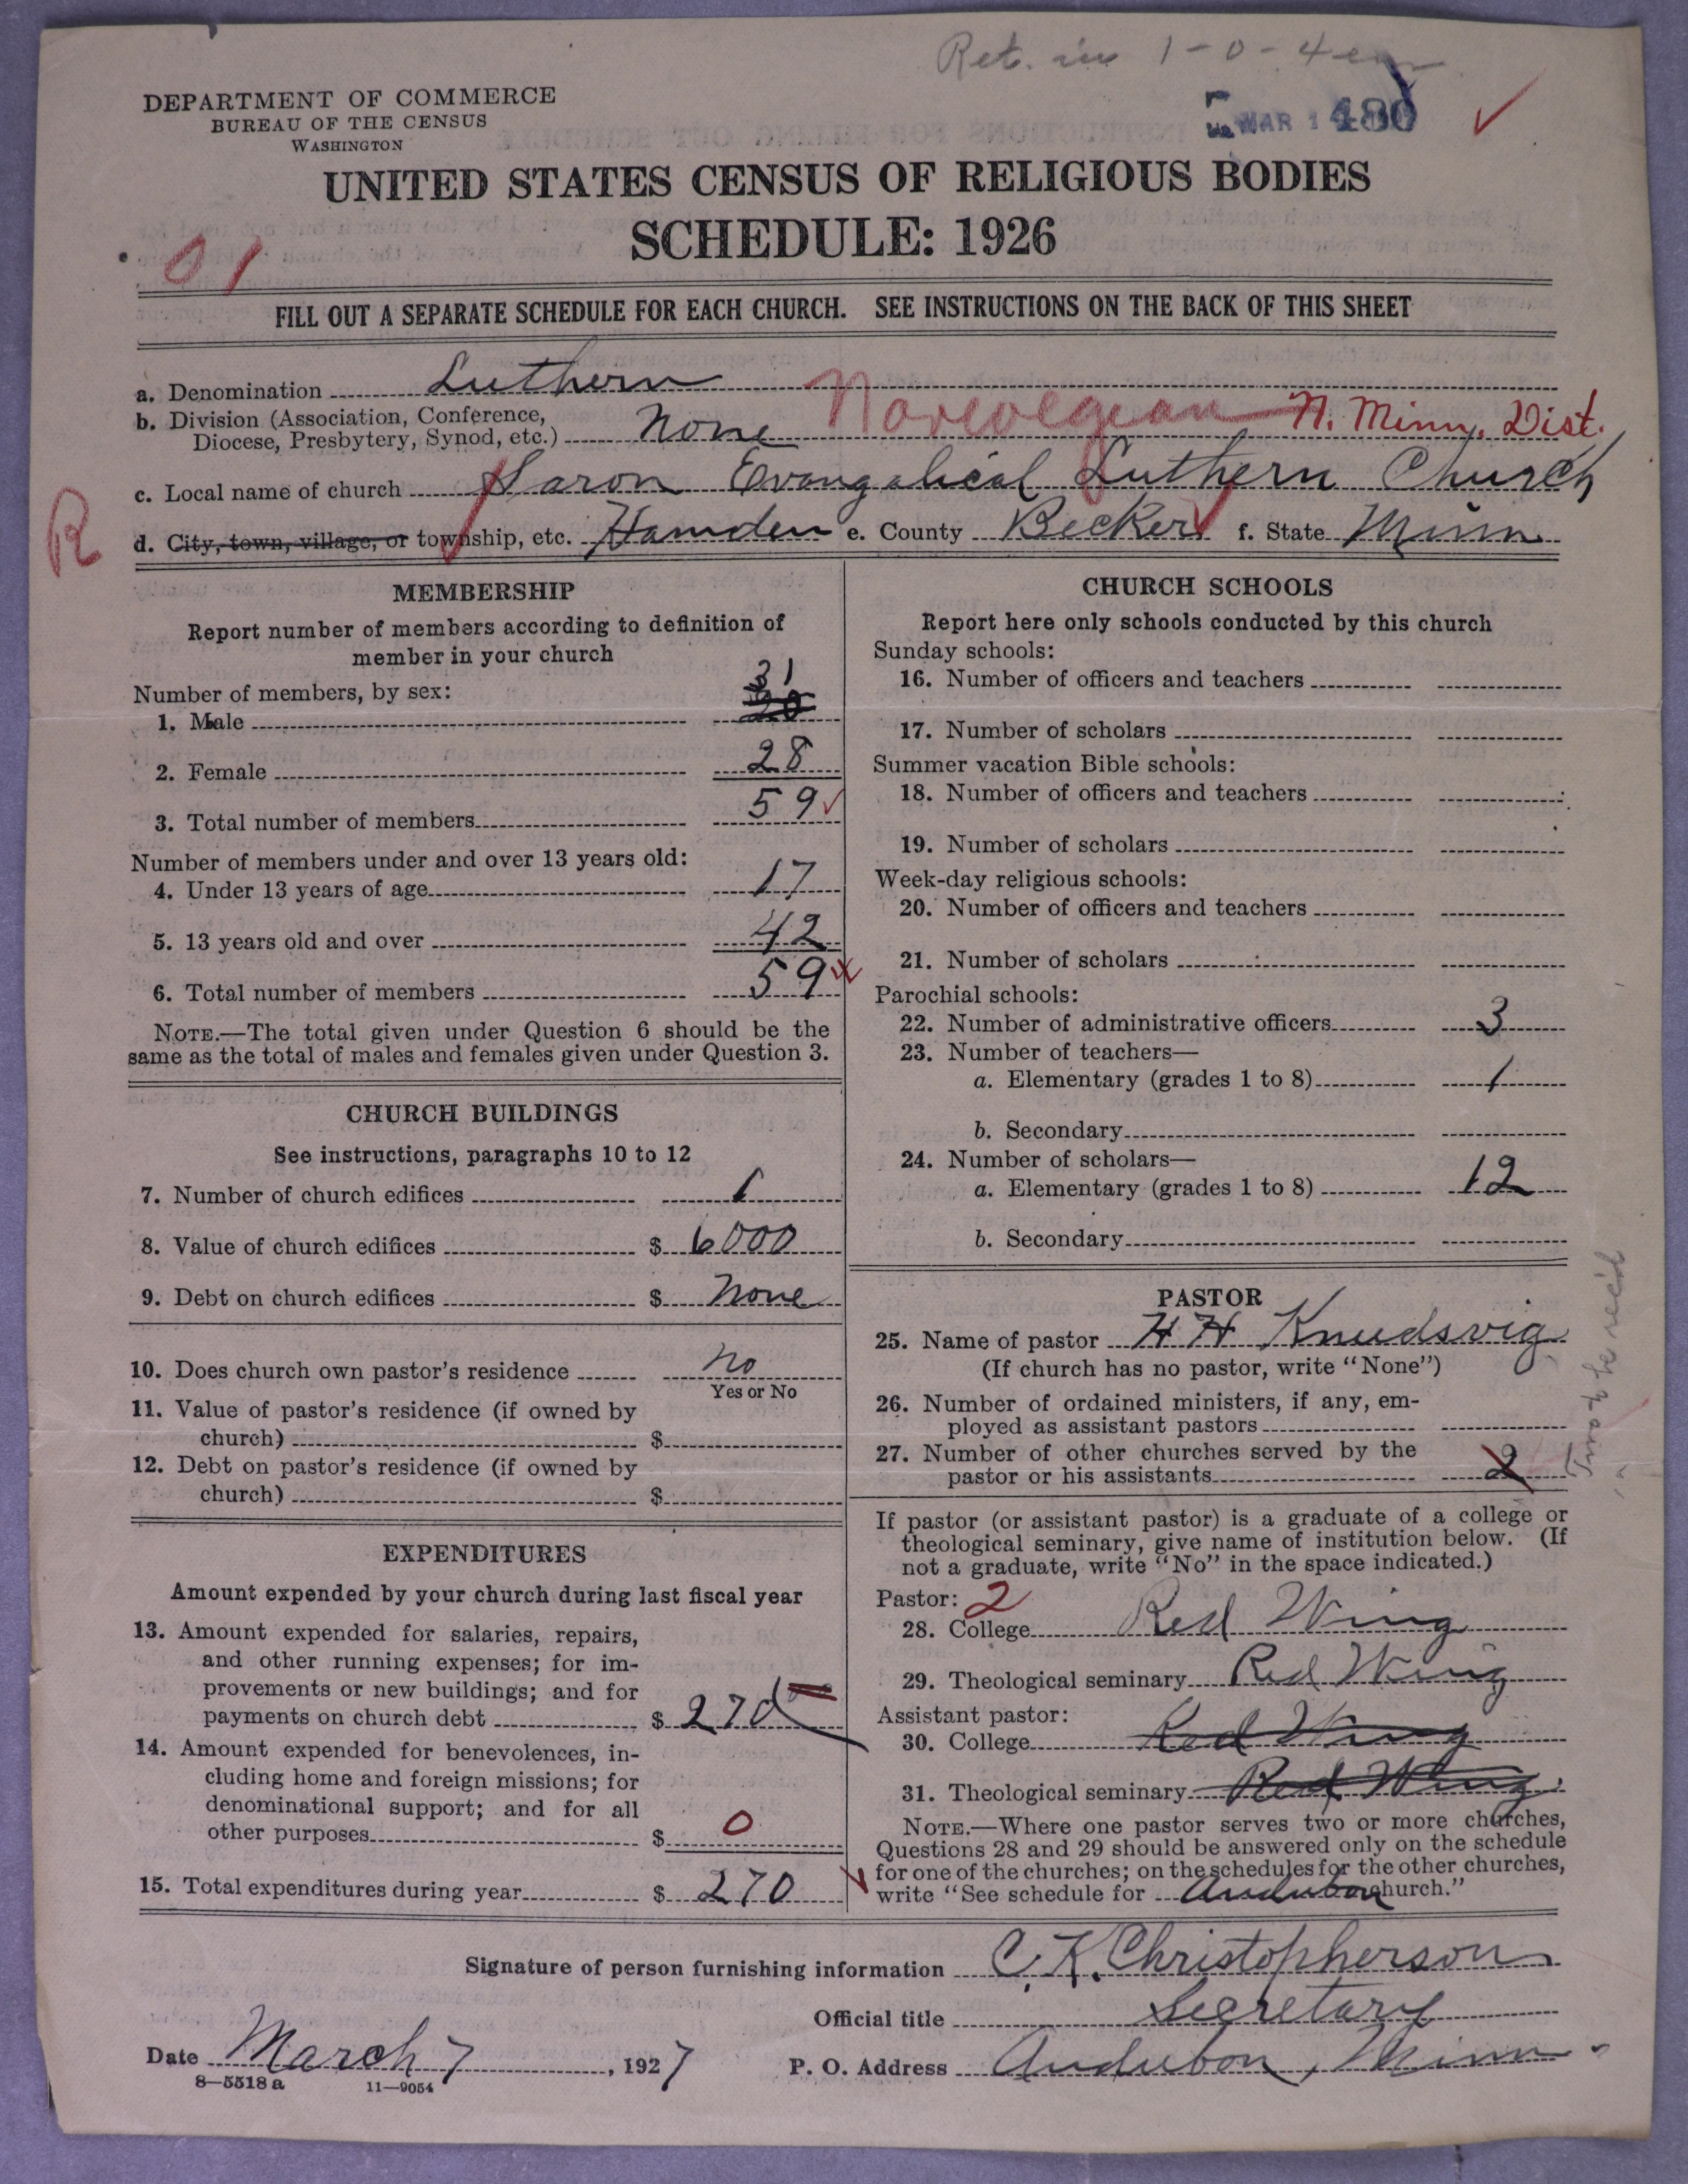 Ret. in 1-0-4
DEPARTMENT OF COMMERCE
BUREAU OF THE CENSUS
WASHINGTON
MAR 1 480
UNITED STATES CENSUS OF RELIGIOUS BODIES
SCHEDULE: 1926
01
FILL OUT A SEPARATE SCHEDULE FOR EACH CHURCH. SEE INSTRUCTIONS ON THE BACK OF THIS SHEET
a. Denomination Luthern
b. Division (Association, Conference,
Diocese, Presbytery, Synod, etc.) None Norwegian N. Minn. Dist.
c. Local name of church Saron Evangalical Luthern Church
R
d. City, town, village, or township, etc. Hamden e. County Becker f. State Minn
MEMBERSHIP
Report number of members according to definition of
member in your church
Number of members, by sex:
31
1. Male 30
2. Female 28
3. Total number of members 59
Number of members under and over 13 years old:
4. Under 13 years of age 17
5. 13 years old and over 42
6. Total number of members 59
NOTE.—The total given under Question 6 should be the
same as the total of males and females given under Question 3.
CHURCH BUILDINGS
See instructions, paragraphs 10 to 12
7. Number of church edifices 1
8. Value of church edifices $ 6000
9. Debt on church edifices $ None
10. Does church own pastor's residence no
Yes or No
11. Value of pastor's residence (if owned by
church) $
12. Debt on pastor's residence (if owned by
church) $
EXPENDITURES
Amount expended by your church during last fiscal year
13. Amount expended for salaries, repairs,
and other running expenses; for im-
provements or new buildings; and for
payments on church debt $ 270
14. Amount expended for benevolences, in-
cluding home and foreign missions; for
denominational support; and for all
other purposes $ 0
15. Total expenditures during year $ 270
CHURCH SCHOOLS
Report here only schools conducted by this church
Sunday schools:
16. Number of officers and teachers
17. Number of scholars
Summer vacation Bible schools:
18. Number of officers and teachers
19. Number of scholars
Week-day religious schools:
20. Number of officers and teachers
21. Number of scholars
Parochial schools:
22. Number of administrative officers 3
23. Number of teachers—
a. Elementary (grades 1 to 8) 1
b. Secondary
24. Number of scholars—
a. Elementary (grades 1 to 8) 12
b. Secondary
PASTOR
25. Name of pastor H H Knudsvig
(If church has no pastor, write "None")
26. Number of ordained ministers, if any, em-
ployed as assistant pastors
27. Number of other churches served by the
pastor or his assistants 2
Two to be rec'd
If pastor (or assistant pastor) is a graduate of a college or
theological seminary, give name of institution below. (If
not a graduate, write "No" in the space indicated.)
Pastor: 2
28. College Red Wing
29. Theological seminary Red Wing
Assistant pastor:
30. College Red Wing
31. Theological seminary Red Wing
NOTE.—Where one pastor serves two or more churches,
Questions 28 and 29 should be answered only on the schedule
for one of the churches; on the schedules for the other churches,
write "See schedule for Audubon church."
Signature of person furnishing information C. K. Christopherson
Official title Secretary
Date March 7, 1927 P. O. Address Audubon, Minn
8—5518 a 11—9054